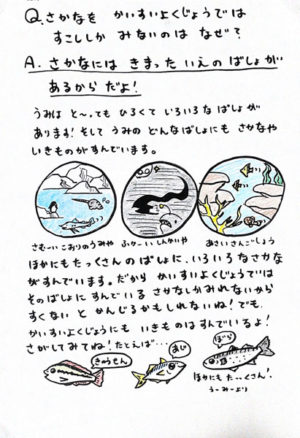 Q.さかなを かいすいよくじょうでは
すこししか みないのは なぜ？
A.さかなには きまった いえのばしょが
あるからだよ！
うみは と〜ってもひろくて いろいろなばしょが
あります！そして うみの どんなばしょにも さかなや
いきものがすんでいます。
さむーいこおりのうみや
ふかーいしんかいや
あさいさんごしょう
ほかにもたっくさんのばしょに、いろいろなさかな
がすんでいます。だから かいすいよくじょうでは
そのばしょに すんでいる さかなしかみれないから
すくない と かんじるかもしれないね！でも、
かいすいよくじょうにも いきものはすんでいるよ！
さがしてみてね！たとえば…
きゅうせん
あじ
ぼら
ほかにもた…くさん！
うーみーより